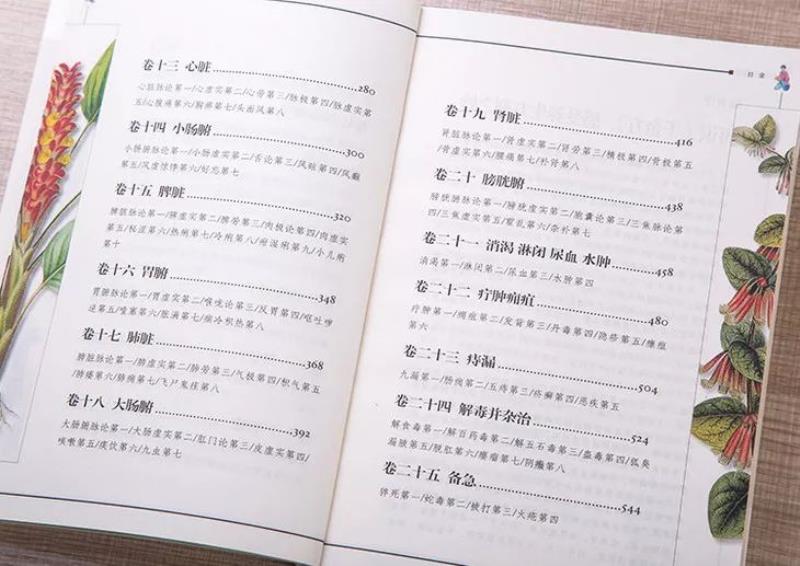 卷十三 心脏 280
心脏脉论第一/心虚实第二/心劳第三/脉极第四/脉虚实第
五/心腹痛第六/胸痹第七/头面风第八
卷十四 小肠腑 300
小肠腑脉论第一/小肠虚实第二/舌论第三/风眩第四/风癫
第五/风虚惊悸第六/好忘第七
卷十五 脾脏 320
脾脏脉论第一/脾虚实第二/脾劳第三/肉极第四/肉虚实
第五/秘涩第六/热痢第七/冷痢第八/疳湿痢第九/小儿痢
第十
卷十六 胃腑 348
胃腑脉论第一/胃虚实第二/喉咙论第三/反胃第四/呕吐哕
逆第五/噎塞第六/胀满第七/痼冷积热第八
卷十七 肺脏 368
肺脏脉论第一/肺虚实第二/肺劳第三/气极第四/积气第五
/肺痿第六/肺痈第七/飞尸鬼疰第八
卷十八 大肠腑 392
大肠腑脉论第一/大肠虚实第二/肛门论第三/皮虚实第四/
咳嗽第五/痰饮第六/九虫第七
目录
卷十九 肾脏 416
肾脏脉论第一/肾虚实第二/肾劳第三/精极第四/骨极第五
/骨虚实第六/腰痛第七/补肾第八
卷二十 膀胱腑 438
膀胱腑脉论第一/膀胱虚实第二/胞囊论第三/三焦脉论第
四/三焦虚实第五/霍乱第六/杂补第七
卷二十一 消渴 淋闭 尿血 水肿 458
消渴第一/淋闭第二/尿血第三/水肿第四
卷二十二 疔肿痈疽 480
疔肿第一/痈疽第二/发背第三/丹毒第四/隐疹第五/瘭疽
第六
卷二十三 痔漏 504
九漏第一/肠痈第二/五痔第三/疥癣第四/恶疾第五
卷二十四 解毒并杂治 524
解食毒第一/解百药毒第二/解五石毒第三/蛊毒第四/狐臭
漏腋第五/脱肛第六/瘿瘤第七/阴癞第八
卷二十五 备急 544
猝死第一/蛇毒第二/被打第三/火疮第四